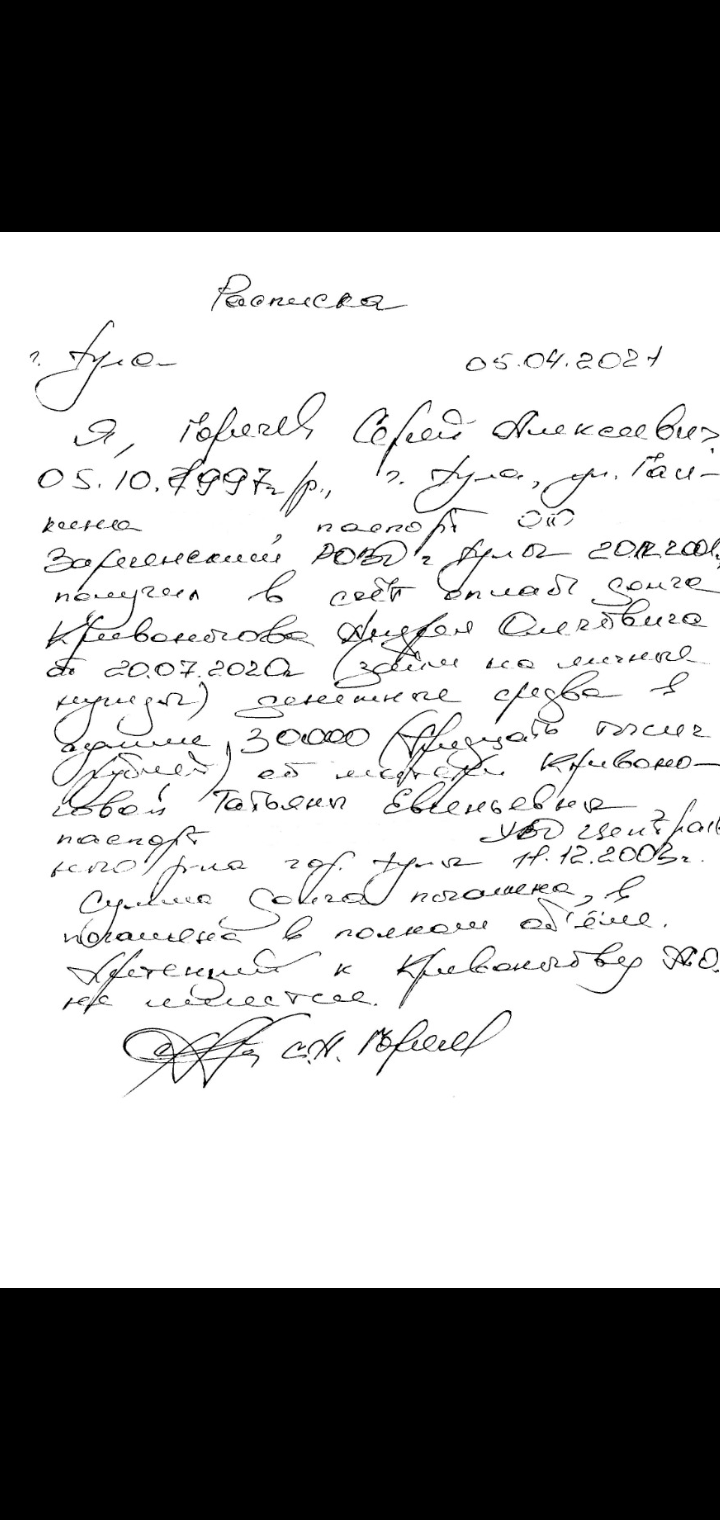 Расписка
г. Тула 05.04.2021
Я, Горячев Сергей Алексеевич
05.10.1997г/р., г. Тула, ул. Гал-
кина паспорт ОП
Зареченский РОВД г. Тулы 20.12.2001,
получил в счёт оплаты долга
Кривоногова Андрея Олеговича
от 20.07.2020г (займ на личные
нужды) денежные средва в
30.000 (тридцать тысяч
рублей) от матери Кривоно-
говой Татьяны Евгеньевны,
паспорт УВД Централь
ного р-на гор. Тулы 11.12.2003г.
Сумма долга погашена, в
погашена в полном объёме.
Претензий к Кривоногову А.О.
не имеется.
С.А.